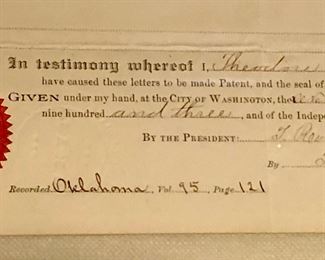 In testimony whereof I, Theodore
have caused these letters to be made Patent, and the seal of
GIVEN under my hand, at the CITY OF WASHINGTON, the
nine hundred and three, and of the Indepe
BY THE PRESIDENT: T. Roo
By
Recorded Oklahoma, Vol. 95, Page 121